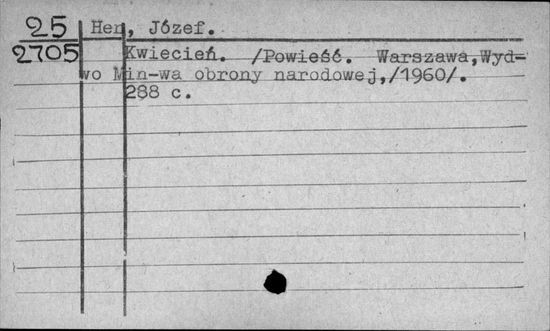 25
2705
Hen, Józef.
Kwiecień. /Powieść. Warszawa,Wyd-
wo Min-wa obrony narodowej,/1960/.
288 c.